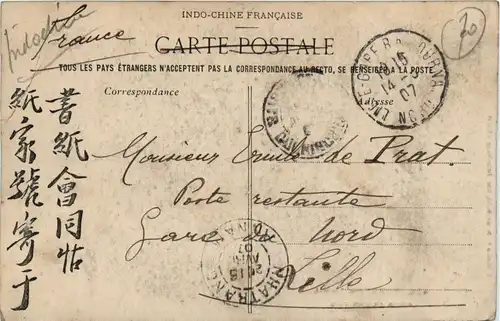 INDO-CHINE FRANÇAISE
Indochine
France
CARTE POSTALE
TOUS LES PAYS ÉTRANGERS N'ACCEPTENT PAS LA CORRESPONDANCE AU RECTO, SE RENSEIGNER A LA POSTE
Correspondance
Adresse
20
書紙會同帖
紙家號寄于
Monsieur Ernest de Prat.
Poste restante
Gare du Nord
Lille
NHATRANG
ANNAM
AVRIL
07
15
14
07